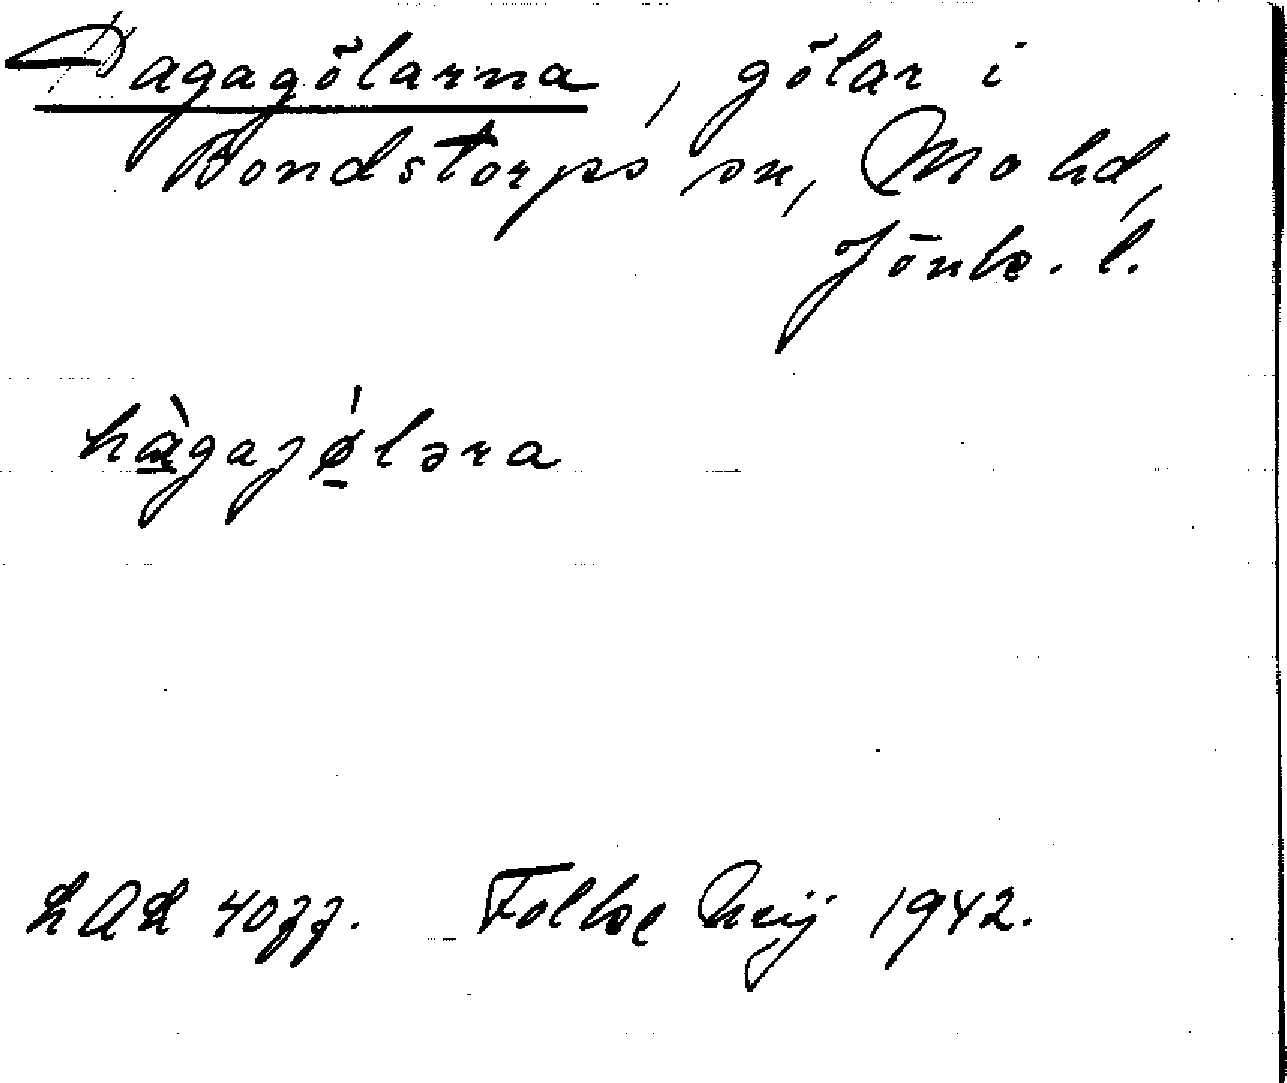 Hagagölarna, gölar i
Bondstorps sn, Mo hd,
Jönk. l.
hàgajø̀lǝra
LAL 4077. Folke Meij 1942.